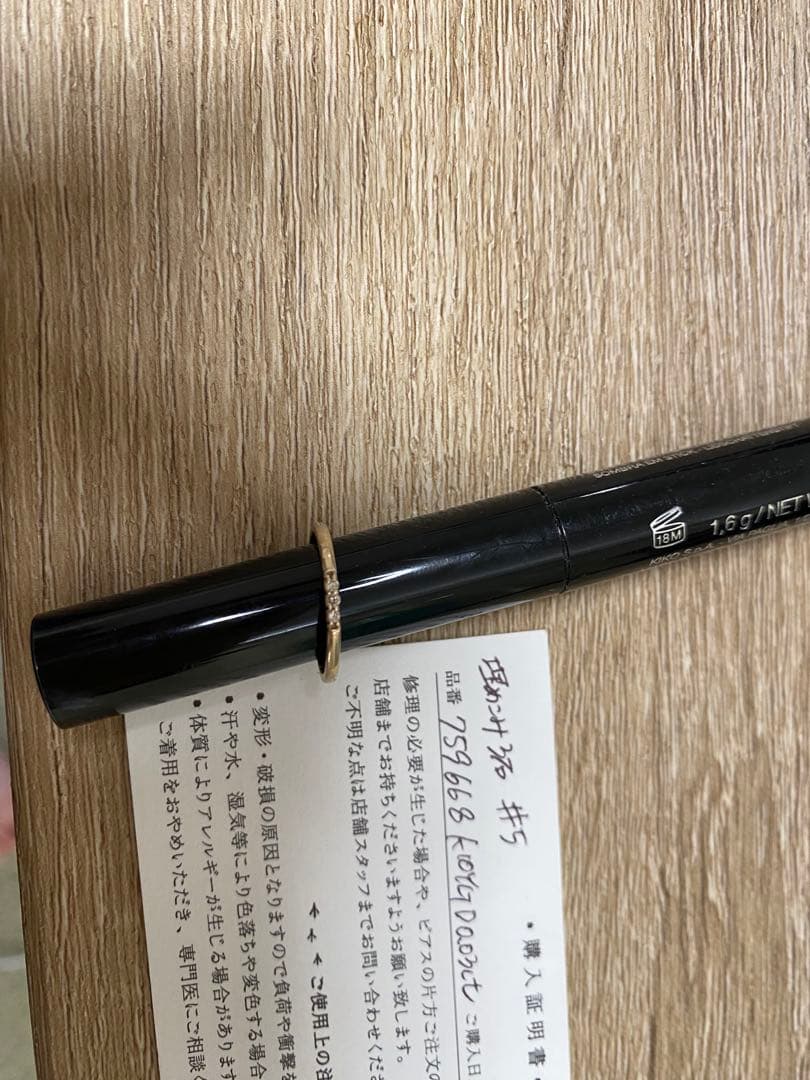 1.6 g/NET
18M
・購入証明書・
埋めこみ3石 #5
品番 759668 K10YG D0.03ct ご購入日
修理の必要が生じた場合や、ピアスの片方ご注文の
店舗までお持ちくださいますようお願い致します。
ご不明な点は店舗スタッフまでお問い合わせくださ
ご使用上の注
・変形・破損の原因となりますので負荷や衝撃を
・汗や水、湿気等により色落ちや変色する場合
・体質によりアレルギーが生じる場合があります
ご着用をおやめいただき、専門医にご相談く